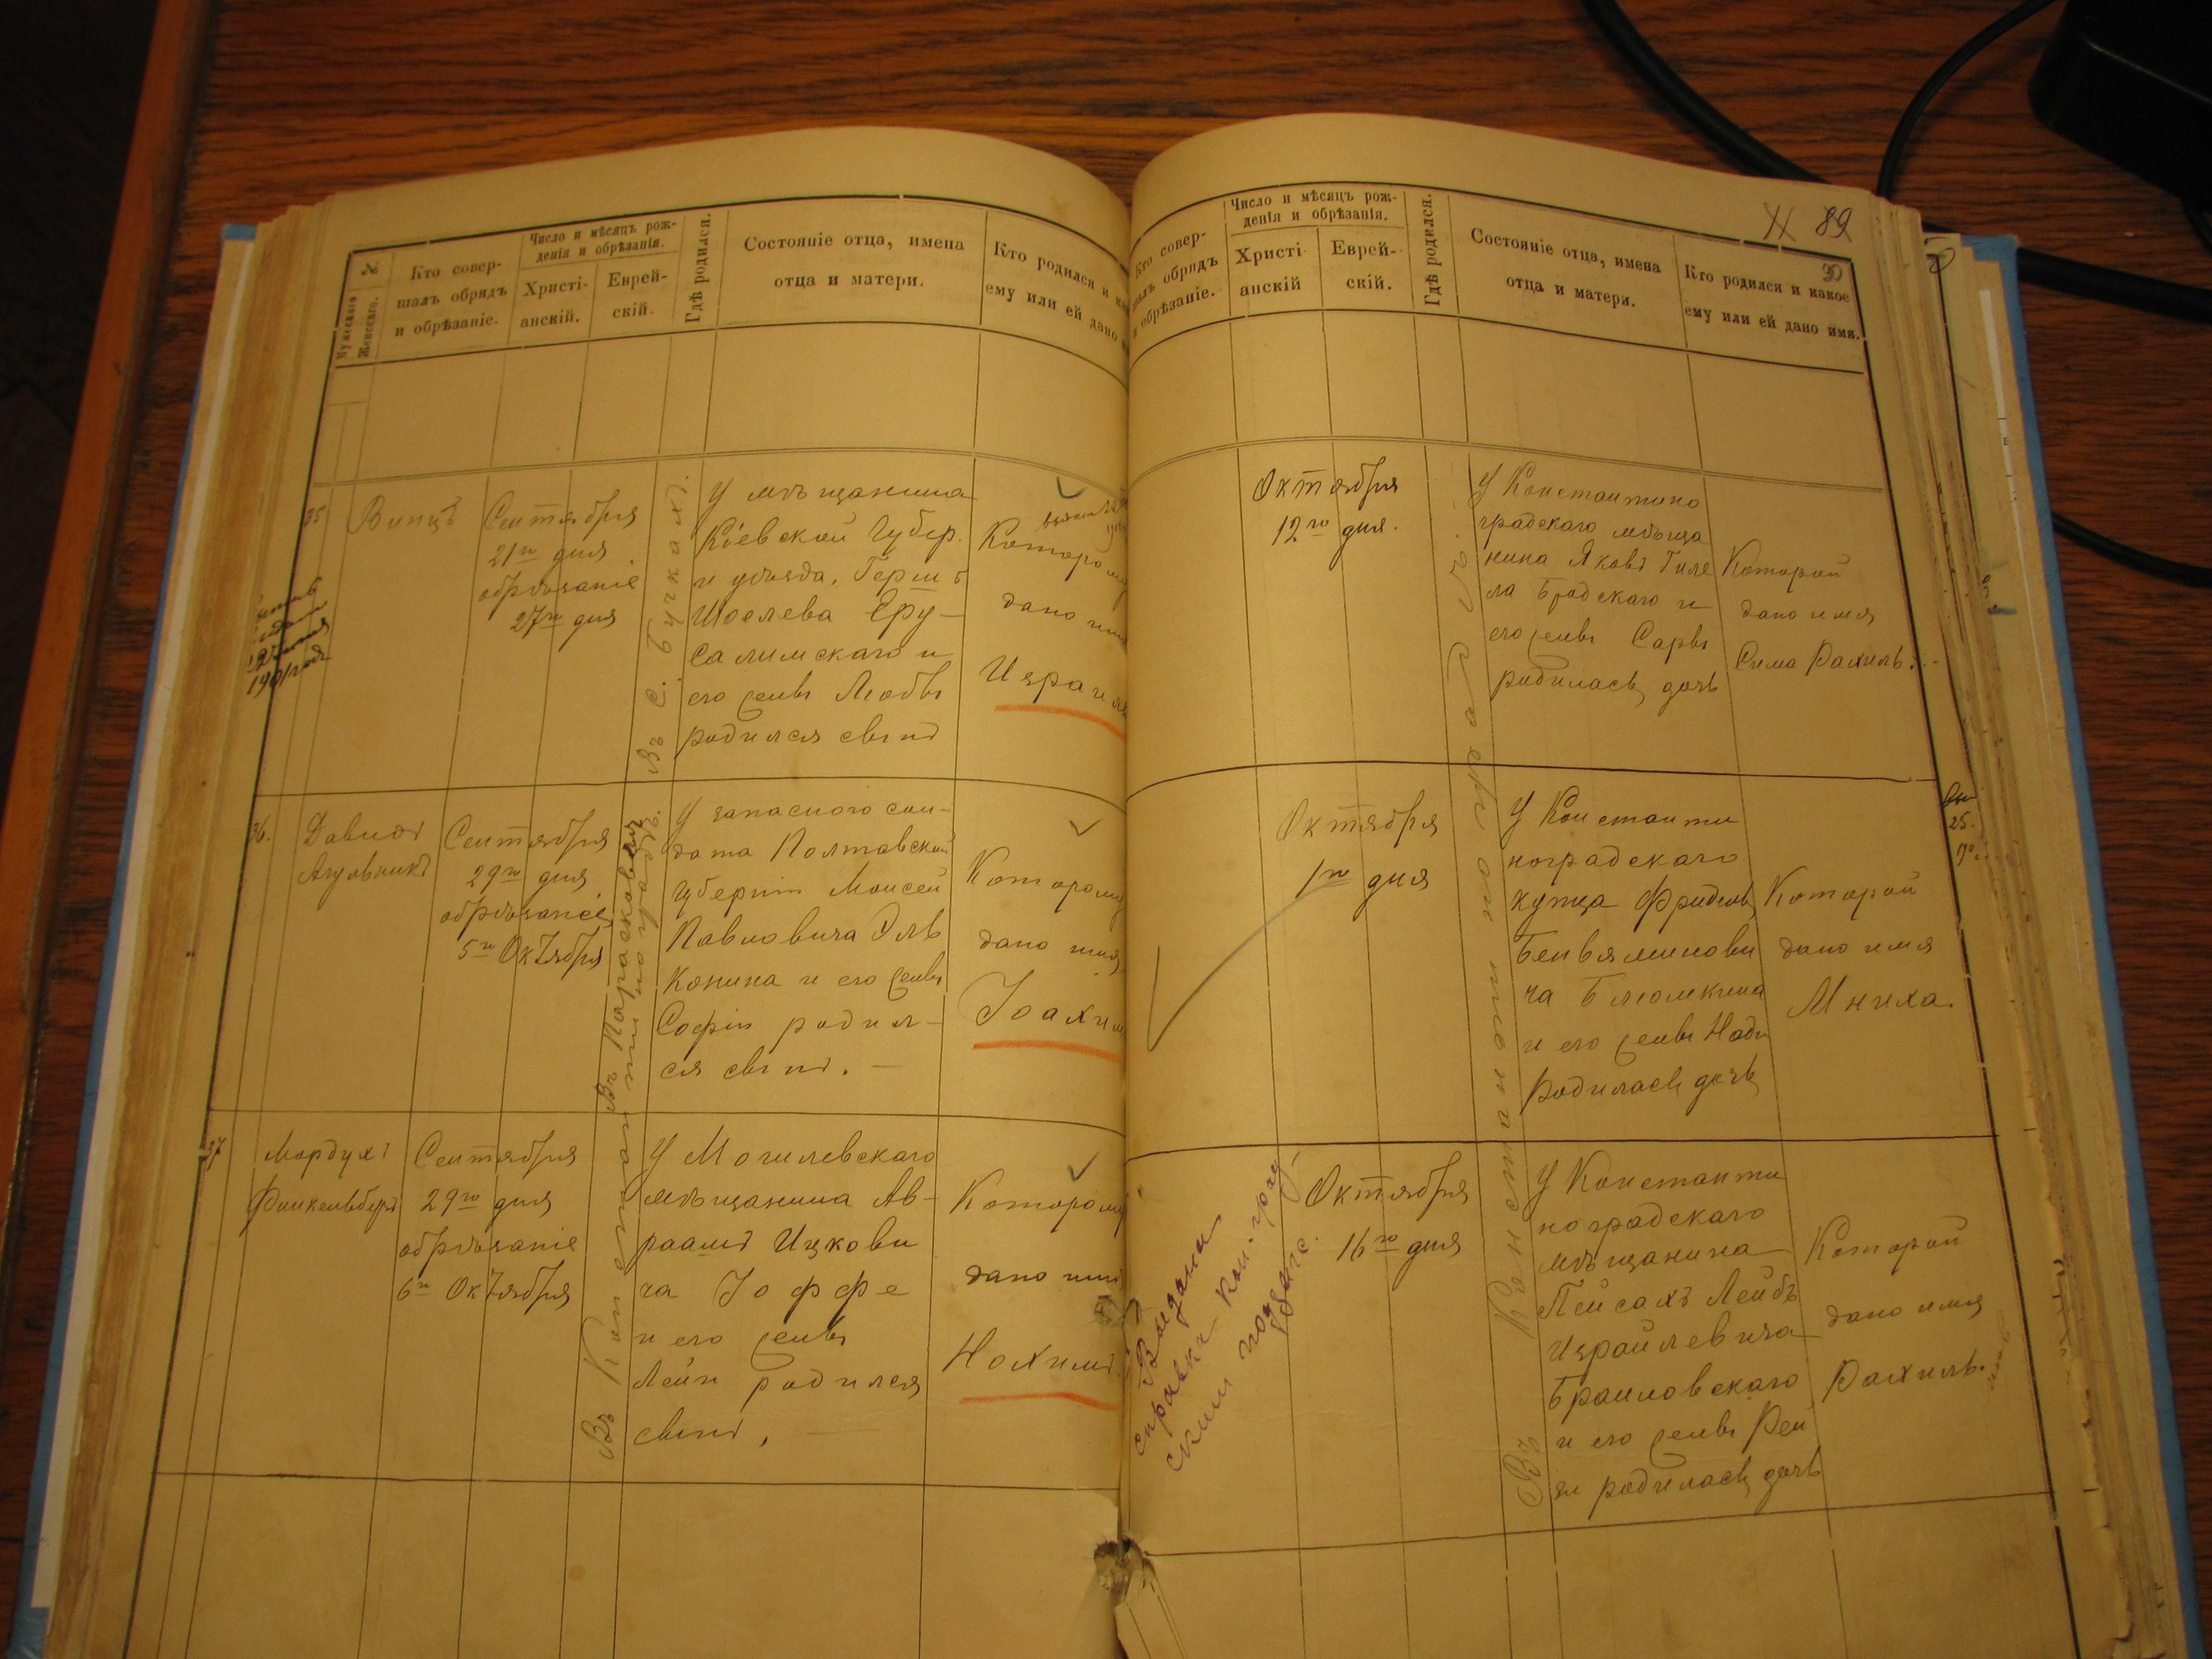 №
Мужескаго
Женскаго.
Кто совер-
шалъ обрядъ
и обрѣзаніе.
Число и мѣсяцъ рож-
денія и обрѣзанія.
Христі-
анскій.
Еврей-
скій.
Гдѣ родился.
Состояніе отца, имена
отца и матери.
Кто родился и
ему или ей дано
35
Винцъ
Сентября
21го дня
обрѣзаніе
27го дня
У мѣщанина
Кіевской Губер.
и уѣзда, Гершъ
Шоелева Еру-
салимскаго и
его жены Любы
родился сынъ
Котором
дано имя
Израиль
36.
Давидъ
Сентября
29го дня
обрѣзаніе
5го Октября
У запаснаго сол-
дата Полтавской
Губерніи Моисей
Павловича Эль
конина и его жены
Софіи родил-
ся сынъ. —
Котором
дано имя
Іоахим
37
Мордухъ
Финкельбергъ
Сентября
29го дня
обрѣзаніе
6го Октября
У Могилевскаго
мѣщанина Ав-
раамъ Ицкови
ча Іоффе
и его жены
Лейи родился
сынъ,
Котором
дано имя
Нохимъ
89
Кто совер-
шалъ обрядъ
и обрѣзаніе.
Число и мѣсяцъ рож-
денія и обрѣзанія.
Христі-
анскій
Еврей-
скій.
Гдѣ родился.
Состояніе отца, имена
отца и матери.
Кто родился и какое
ему или ей дано имя.
Октября
12го дня.
У Константино
градскаго мѣща
нина Яковъ Гиле
ла Бродскаго и
его жены Сары
родилась дочь
Которой
дано имя
Сима Рахиль.
Октября
1го дня
У Константи
ноградскаго
купца
Беньяминови
ча Блюмкина
и его жены Нади
родилась дочь
Которой
дано имя
Мниха.
Выдана
справка Кон.-град-
ским
Октября
16го дня
У Константи
ноградскаго
мѣщанина
Пейсахъ Лейбъ
Израйлевича
Браиловскаго
и его жены Рей
зи родилась дочь
Которой
дано имя
Рахиль.